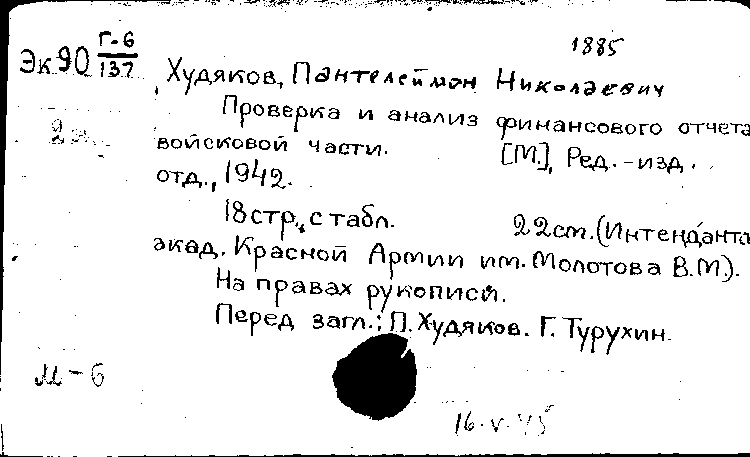 1885
Эк90 Г-6/137
Худяков, Пантелеймон Николаевич
Проверка и анализ финансового отчета
войсковой части. [М.], Ред.-изд.
отд., 1942.
18 стр., с табл. 22 см. (Интенданта
акад. Красной Армии им. Молотова В.М.).
На правах рукописи.
Перед загл.: П. Худяков. Г. Турухин.
М-6
16.V.45